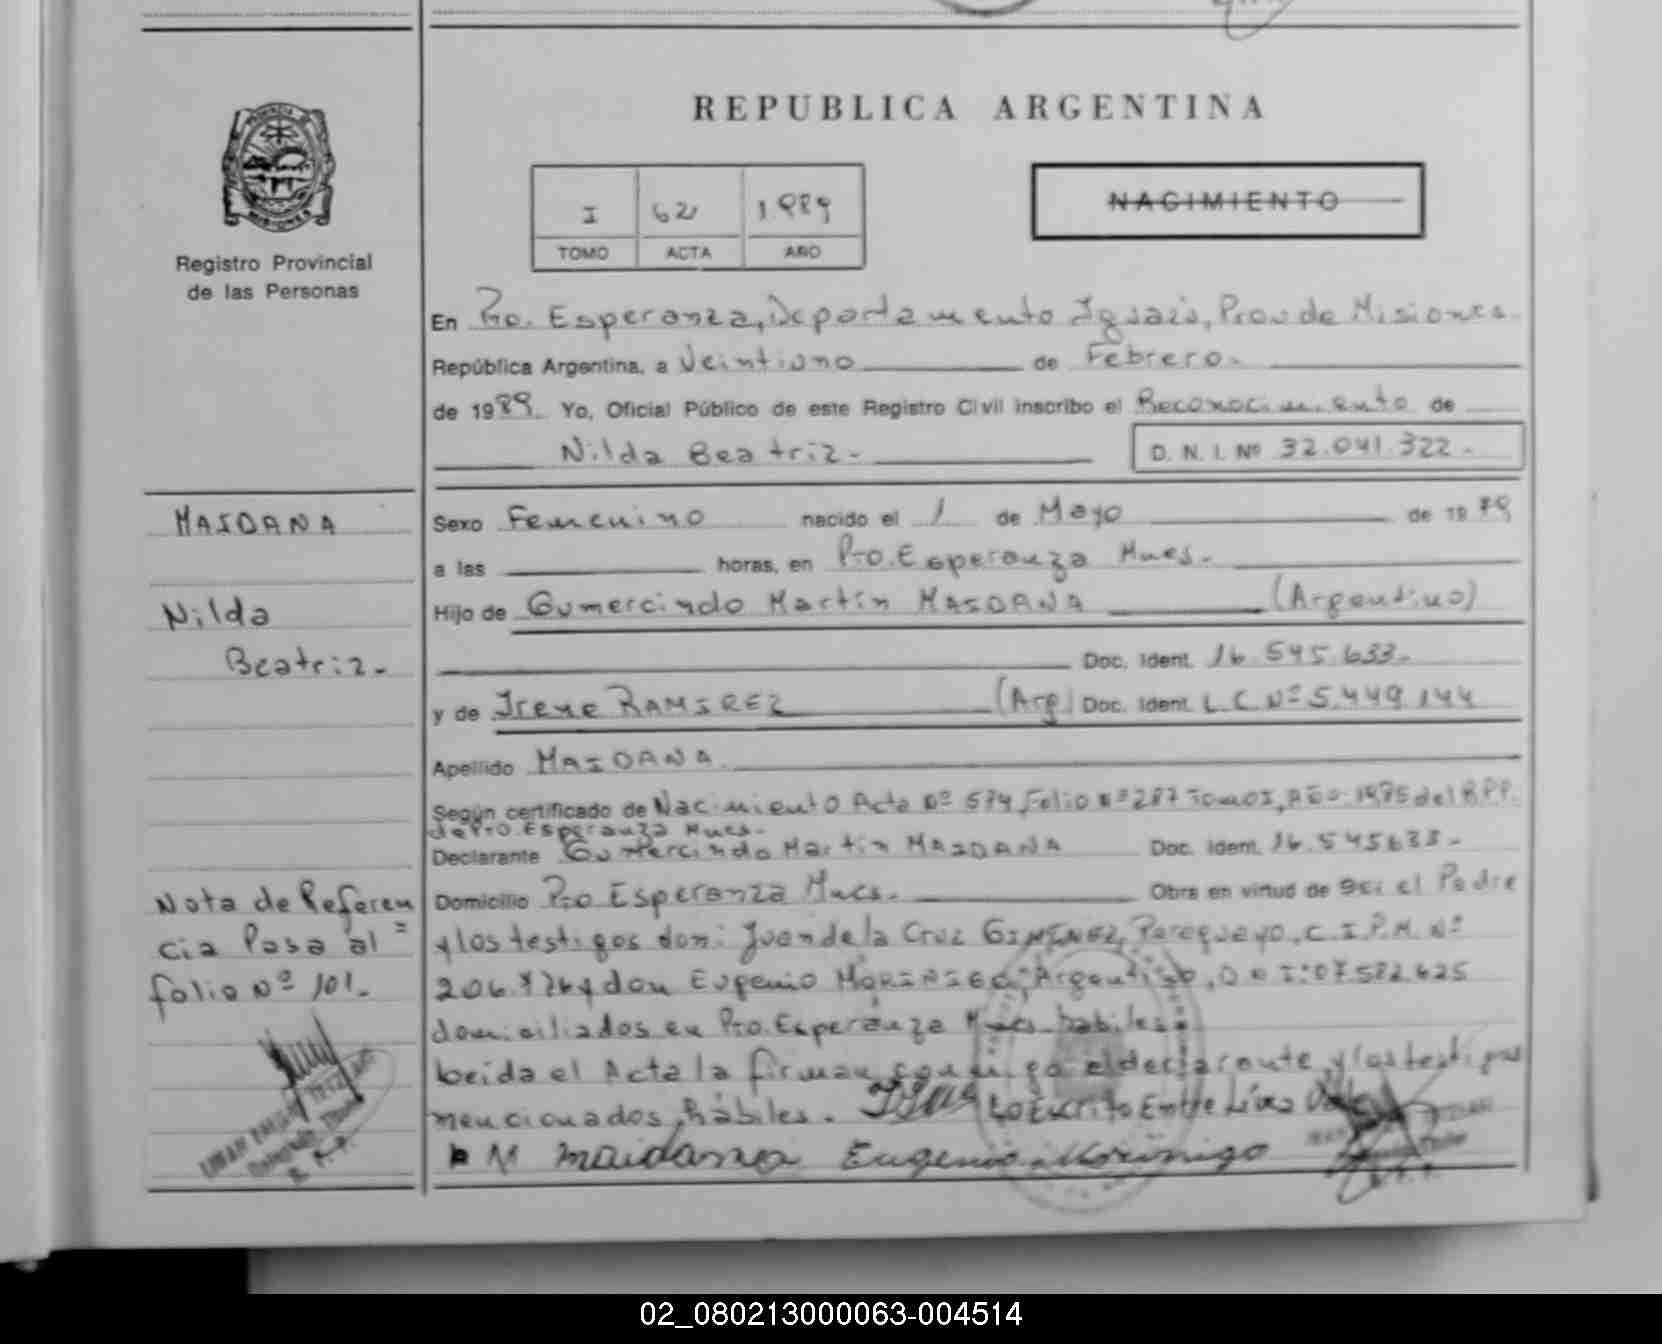 REPUBLICA ARGENTINA
PROVINCIA DE
MISIONES
Registro Provincial
de las Personas
I 62 1989
TOMO ACTA AÑO
NACIMIENTO
En Pto. Esperanza, Departamento Iguazú, Prov de Misiones.
República Argentina, a Veintiuno de Febrero.
de 1989. Yo, Oficial Público de este Registro Civil inscribo el Reconocimiento de
Nilda Beatriz. D. N. I. Nº 32.041.322.
MAIDANA
Nilda
Beatriz.
Sexo Femenino nacido el 1 de Mayo de 19
a las horas, en Pto. Esperanza Mnes.
Hijo de Gumercindo Martín MAIDANA (Argentino)
Doc. Ident. 16.545.633.
y de Irene RAMIREZ (Arg) Doc. Ident. L.C. Nº 5.449.144
Apellido MAIDANA
Según certificado de Nacimiento Acta Nº 574, Folio Nº 287 Tomo I, Año del R.P.P.
de Pto. Esperanza Mnes.
Declarante Gumercindo Martín MAIDANA Doc. Ident. 16.545633.
Domicilio Pto Esperanza Mnes. Obra en virtud de ser el Padre
y los testigos don: Juan de la Cruz GIMENEZ, Paraguayo, C.I.P.M. Nº
y don Eugenio MORINIGO, Argentino, D N I: 07.522.625
domiciliados en Pto. Esperanza Mnes habiles.
Leida el Acta la firman conmigo el declarante, y los testigos
mencionados, hábiles. Lo Escrito Entre Linea Vale
M Maidana Eugenio Morinigo
Nota de Referen
cia Pasa al
folio Nº 101.
02_080213000063-004514